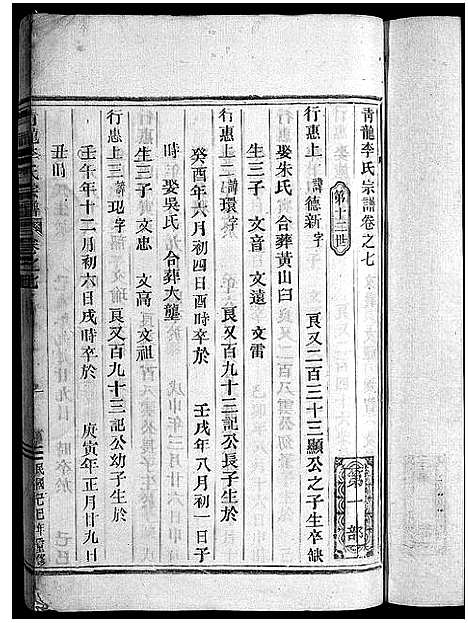 青龍李氏宗譜卷之七
第一部
第十三世
行惠上一諱德新字 頁又二百三十三顯公之子生卒缺
娶朱氏合葬黃山臼
生三子 文音 文遠 文雷
行惠上二諱環字 頁又百九十三記公長子生於
癸酉年六月初四日酉時卒於 壬戌年八月初一日子
時 娶吳氏合葬大壟
生三子 文忠 文高 文祖
行惠上三諱現字 頁又百九十三記公幼子生於
壬午年十二月初六日戌時卒於 庚寅年正月廿九日
丑時
民國己巳年重修